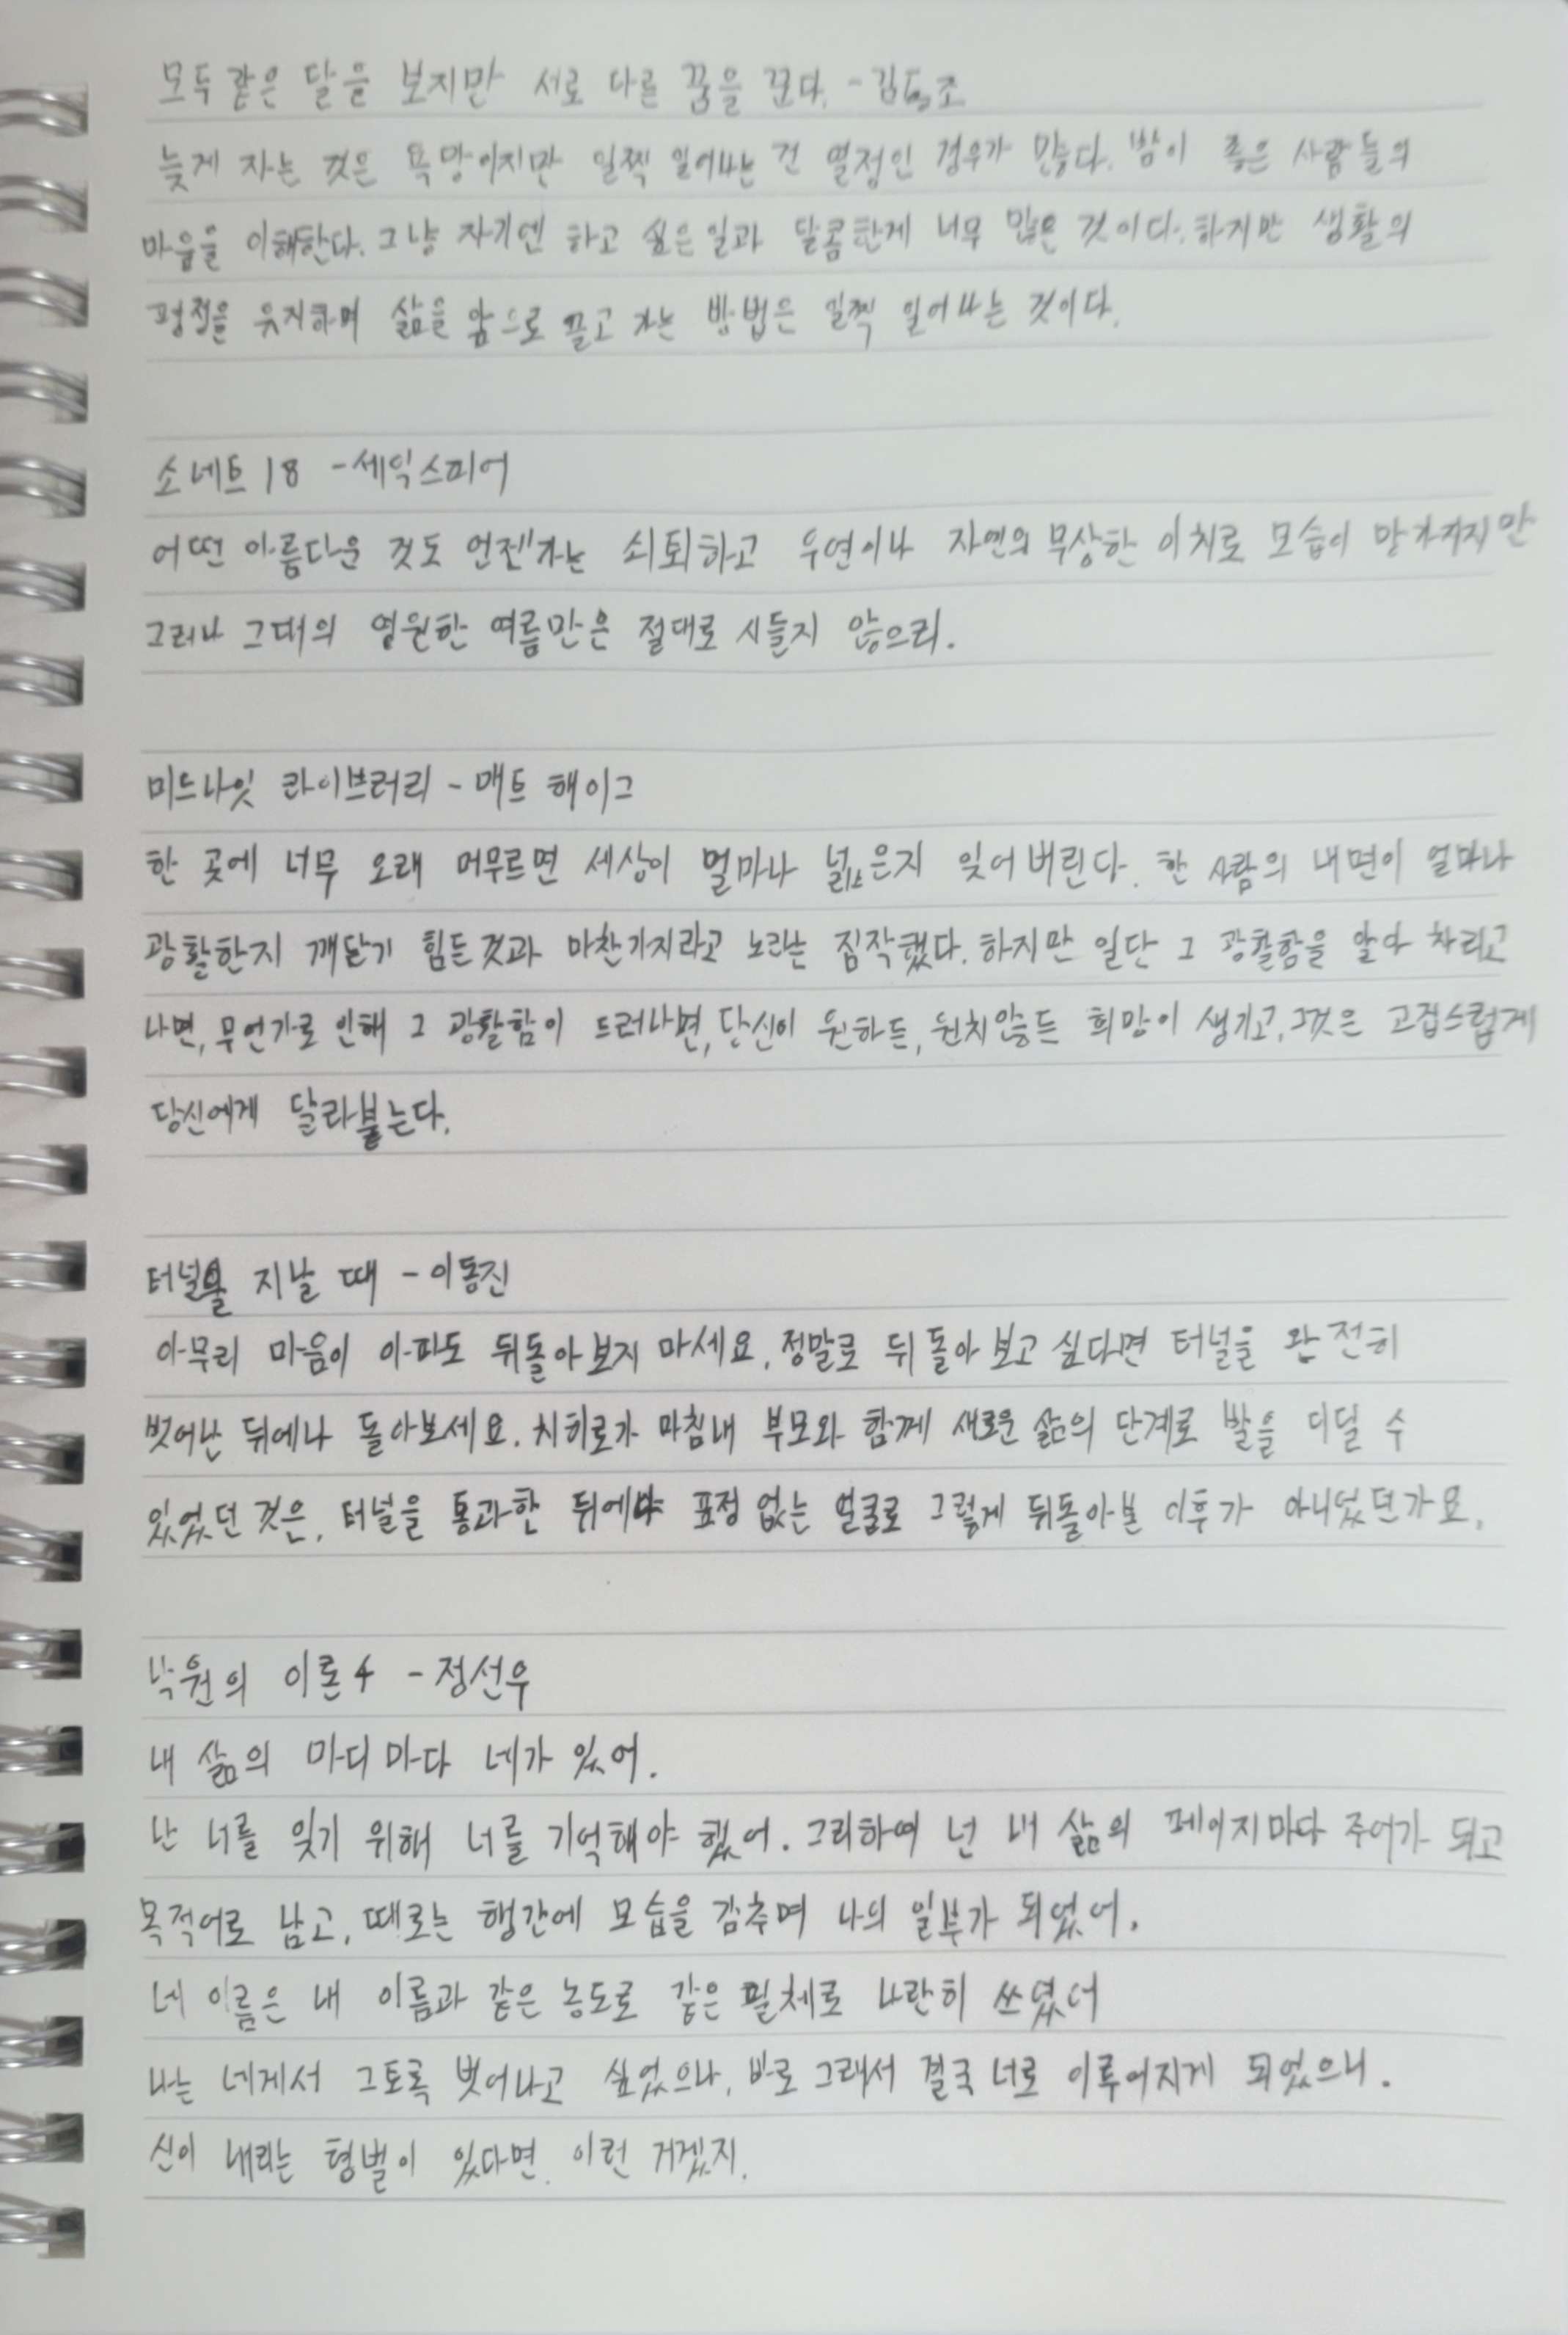 모두 같은 달을 보지만 서로 다른 꿈을 꾼다. - 김동조
늦게 자는 것은 욕망이지만 일찍 일어나는 건 열정인 경우가 많다. 밤이 좋은 사람들의
마음을 이해한다. 그냥 자기엔 하고 싶은 일과 달콤한게 너무 많은 것이다. 하지만 생활의
평정을 유지하며 삶을 앞으로 끌고 가는 방법은 일찍 일어나는 것이다.
소네트 18 - 셰익스피어
어떤 아름다운 것도 언젠가는 쇠퇴하고 우연이나 자연의 무상한 이치로 모습이 망가지지만
그러나 그대의 영원한 여름만은 절대로 시들지 않으리.
미드나잇 라이브러리 - 매트 헤이그
한 곳에 너무 오래 머무르면 세상이 얼마나 넓은지 잊어버린다. 한 사람의 내면이 얼마나
광활한지 깨닫기 힘든 것과 마찬가지라고 노라는 짐작했다. 하지만 일단 그 광활함을 알아 차리고
나면, 무언가로 인해 그 광활함이 드러나면, 당신이 원하든, 원치않든 희망이 생기고, 그것은 고집스럽게
당신에게 달라붙는다.
터널을 지날 때 - 이동진
아무리 마음이 아파도 뒤돌아보지 마세요. 정말로 뒤 돌아 보고 싶다면 터널을 완전히
벗어난 뒤에나 돌아보세요. 치히로가 마침내 부모와 함께 새로운 삶의 단계로 발을 디딜 수
있었던 것은, 터널을 통과한 뒤에야 표정 없는 얼굴로 그렇게 뒤돌아본 이후가 아니었던가요.
낙원의 이론 4 - 정선우
내 삶의 마디마다 네가 있어.
난 너를 잊기 위해 너를 기억해야 했어. 그리하여 넌 내 삶의 페이지마다 주어가 되고
목적어로 남고, 때로는 행간에 모습을 감추며 나의 일부가 되었어.
네 이름은 내 이름과 같은 농도로 같은 필체로 나란히 쓰였어
나는 네게서 그토록 벗어나고 싶었으나, 바로 그래서 결국 너로 이루어지게 되었으니.
신이 내리는 형벌이 있다면. 이런 거겠지.